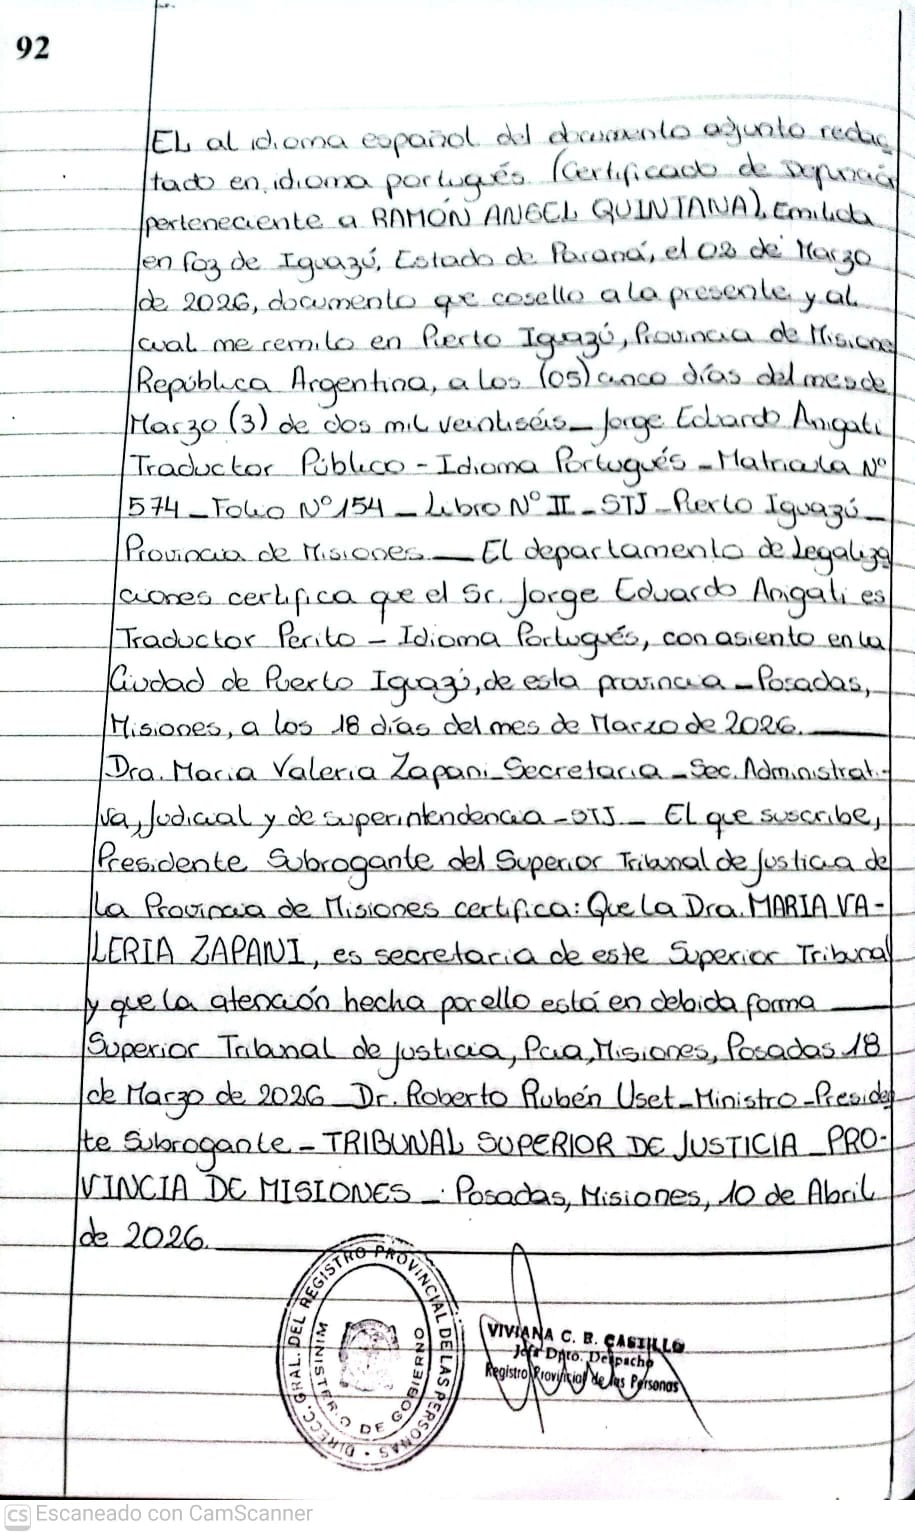 92
EL al idioma español del documento adjunto redac
tado en idioma portugués (Certificado de Defunción
perteneciente a RAMÓN ANGEL QUINTANA). Emitida
en Foz de Iguazú, Estado de Paraná, el 02 de Marzo
de 2026, documento que cosello a la presente y al
cual me remito en Puerto Iguazú, Provincia de Misione
República Argentina, a los (05) cinco días del mes de
Marzo (3) de dos mil veintiséis_ Jorge Eduardo Anigati
Traductor Público - Idioma Portugués - Matricula N°
574 _ Folio N° 154 _ Libro N° II _ STJ _ Puerto Iguazú _
Provincia de Misiones. __ El departamento de Legaliza
ciones certifica que el Sr. Jorge Eduardo Anigati es
Traductor Perito - Idioma Portugués, con asiento en la
Ciudad de Puerto Iguazú, de esta provincia _ Posadas,
Misiones, a los 18 días del mes de Marzo de 2026. ____
Dra. Maria Valeria Zapani _ Secretaria _ Sec. Administrati-
va, Judicial y de superintendencia - STJ. _ El que suscribe,
Presidente Subrogante del Superior Tribunal de Justicia de
la Provincia de Misiones certifica: Que la Dra. MARIA VA-
LERIA ZAPANI, es secretaria de este Superior Tribunal
y que la atención hecha por ello está en debida forma ____
Superior Tribunal de Justicia, Pcia, Misiones, Posadas 18
de Marzo de 2026 _ Dr. Roberto Rubén Uset _ Ministro _ Preside
te Subrogante - TRIBUNAL SUPERIOR DE JUSTICIA _ PRO-
VINCIA DE MISIONES _. Posadas, Misiones, 10 de Abril
de 2026. ____
DIRECC. GRAL. DEL REGISTRO PROVINCIAL DE LAS PERSONAS
MINISTERIO DE GOBIERNO
VIVIANA C. B. CASTILLO
Jefa Dpto. Despacho
Registro Provincial de las Personas
CS Escaneado con CamScanner